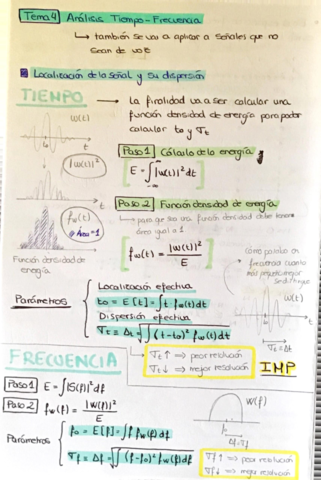 Tema 4 Análisis Tiempo-Frecuencia
↳ también se va a aplicar a señales que no
sean de voz
Localización de la señal y su dispersión
TIEMPO → La finalidad va a ser calcular una
función densidad de energía para poder
calcular to y σt
w(t)
t
|w(t)|²
Paso 1 Cálculo de la energía
E = ∫|w(t)|² dt
-∞
∞
Paso 2 Función densidad de energía
↳ para que sea una función densidad debe tener
área igual a 1
fw(t)
Área=1
t
fw(t) = |w(t)|² / E
Función densidad de
energía
cómo pasillo en
frecuencia cuanto
más pequeño mejor
w(t)
t
σt = Δt
Parámetros
Localización efectiva
to = E[t] = ∫t fw(t) dt
Dispersión efectiva
σt ≡ Δt = √∫(t-to)² fw(t) dt
σt ↑ ⇒ peor resolución
σt ↓ ⇒ mejor resolución
IMP
FRECUENCIA
Paso 1 E = ∫|S(f)|² df
Paso 2 fw(f) = |W(f)|² / E
W(f)
Δf=σf
Parámetros
fo = E[f] = ∫f fw(f) df
σf ≡ Δf = √∫(f-fo)² fw(f) df
σf ↑ ⇒ peor resolución
σf ↓ ⇒ mejor resolución